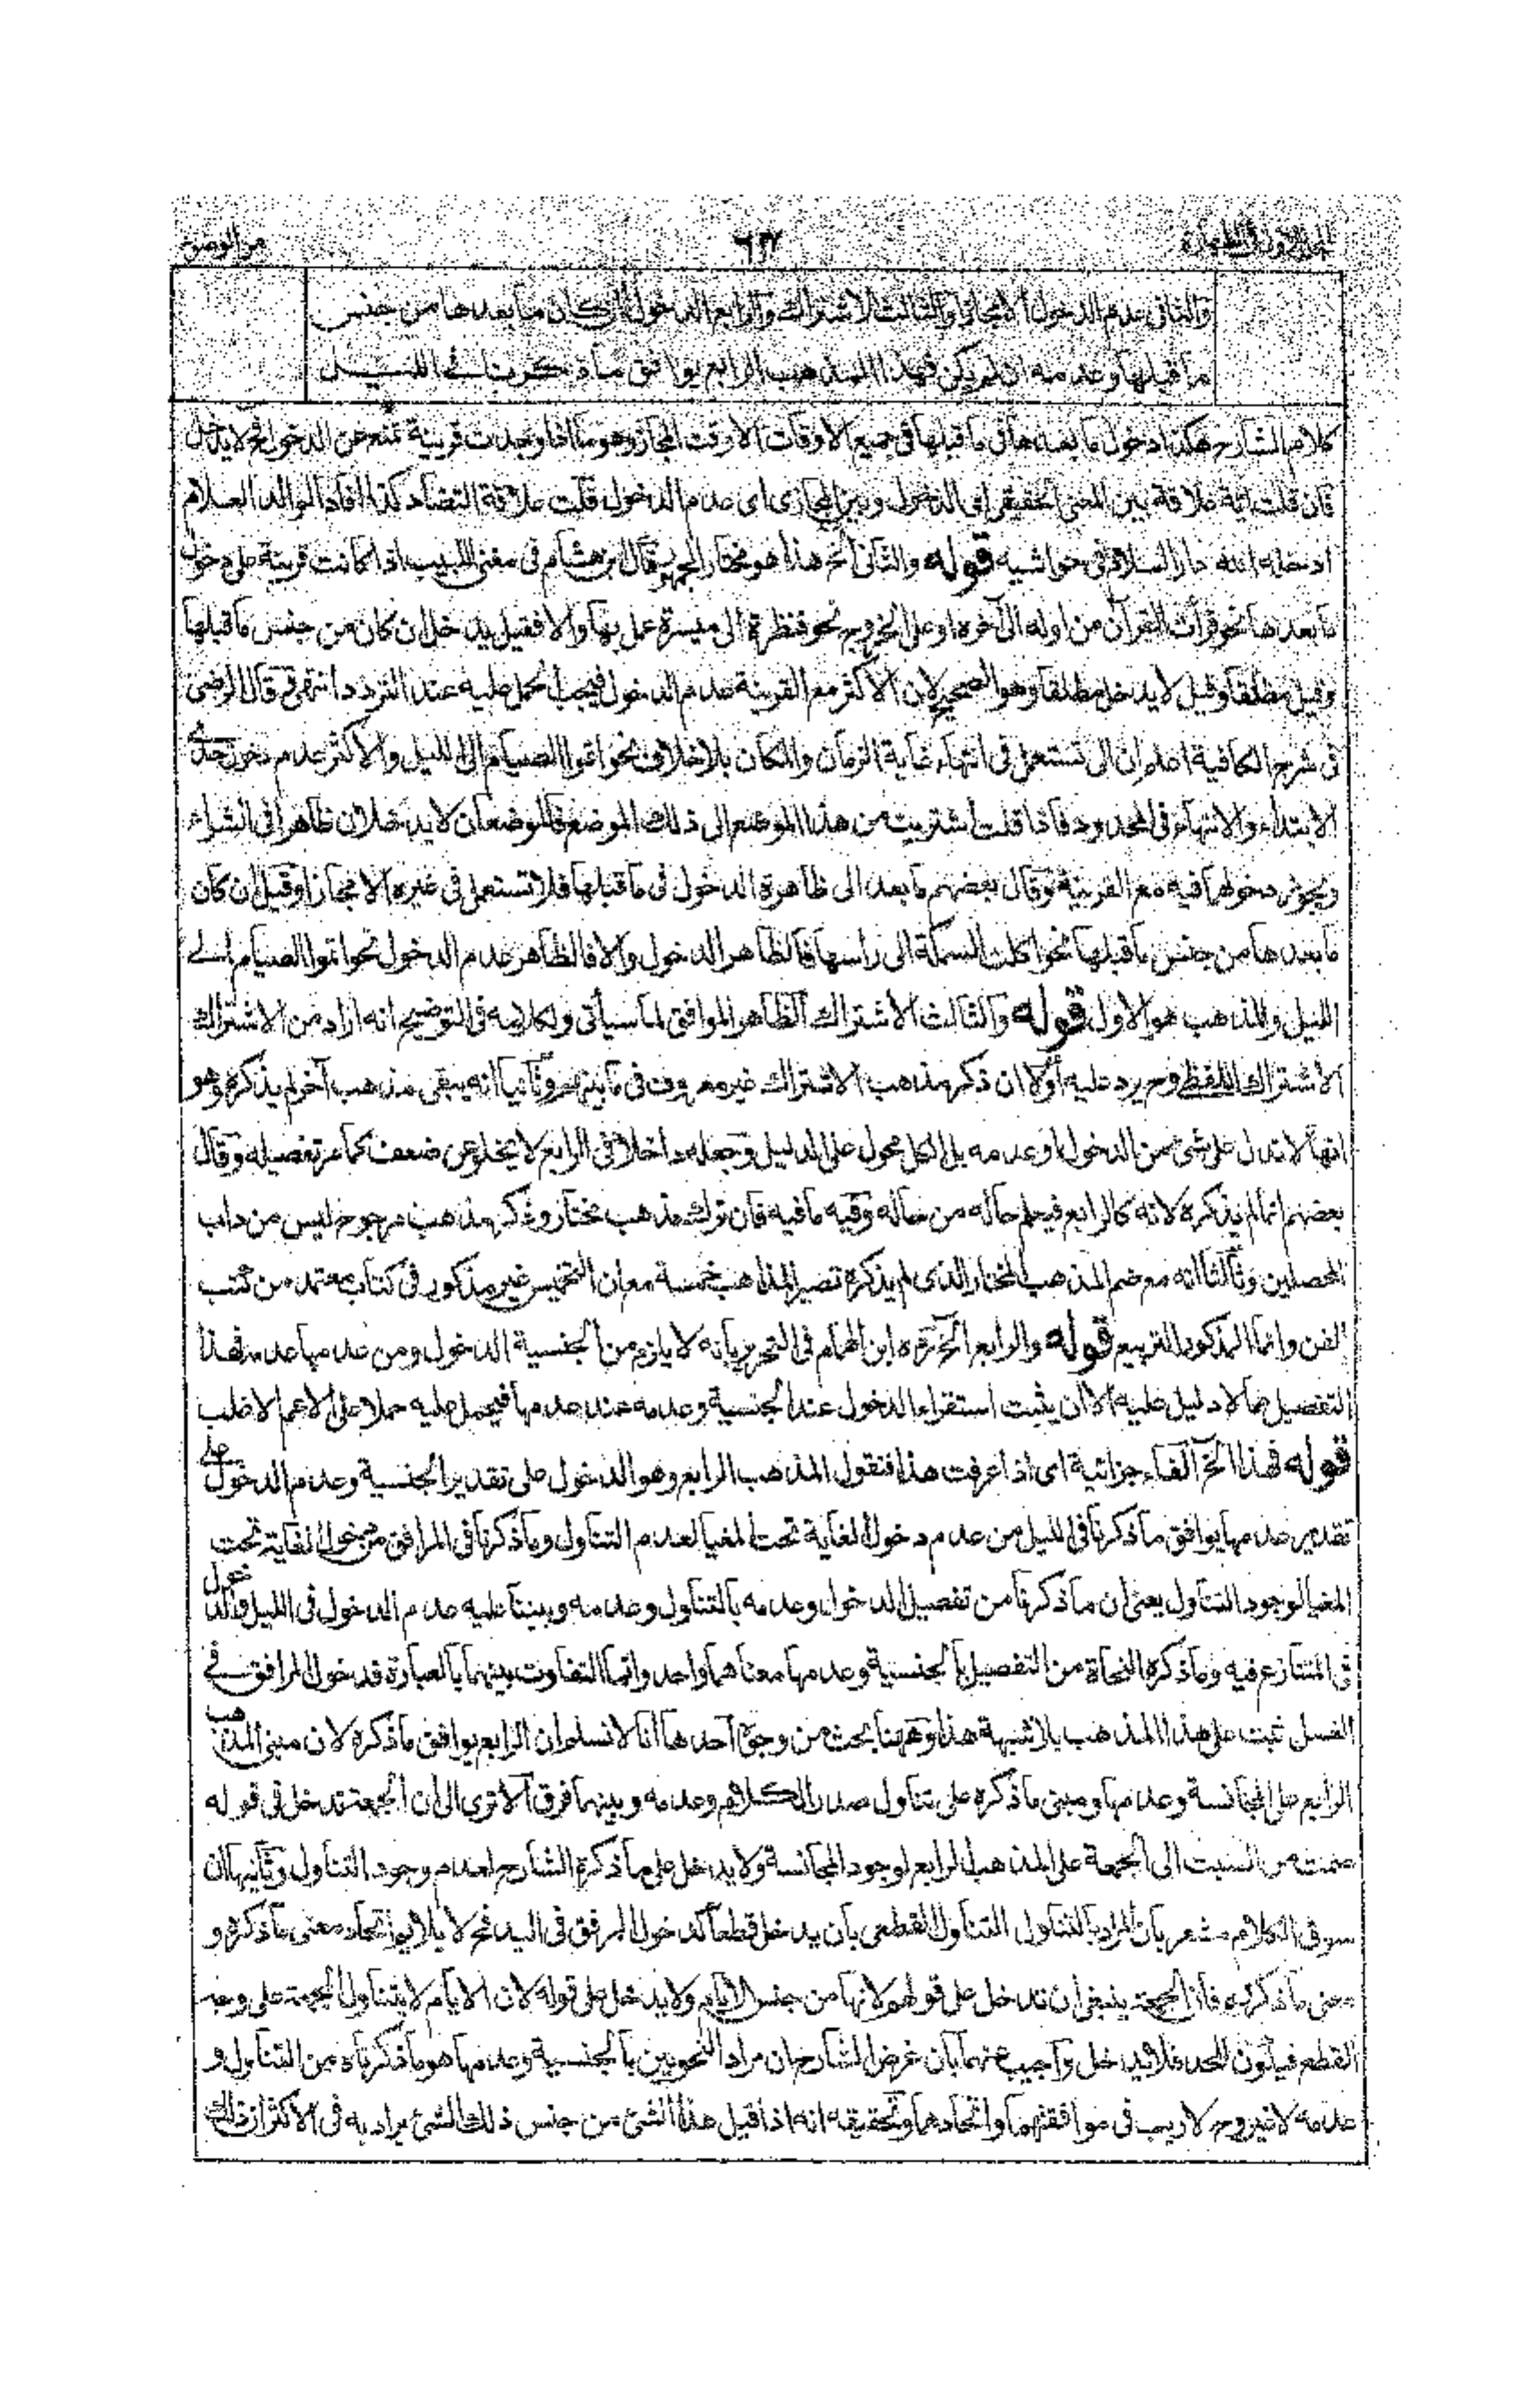 من الوضوء
والثاني عدم الدخول الا مجازا والثالث الاشتراك والرابع الدخول ان كان ما بعدها من جنس
ما قبلها وعدمه ان لم يكن فهذا المذهب الرابع يوافق ما ذكرنا في الليل
كلام الشارح هكذا دخول ما بعدها في ما قبلها في جميع الاوقات الا وقت المجاز وهو ما اذا وجدت قرينة تمنع عن الدخول فح لا يدخل
فان قلت اية علاقة بين المعنى الحقيقي اي الدخول وبين المجازى اى عدم الدخول قلت علاقة التضاد كذا افاد الوالد العلام
ادخله الله دار السلام في حواشيه قوله والثانى الخ هذا هو مختار الجمهور قال ابن هشام فى مغنى اللبيب اذا كانت قرينة على دخول
ما بعدها نحو قرأت القرآن من اوله الى آخره او على الخروج نحو فنظرة الى ميسرة عمل بها والا فقيل يدخل ان كان من جنس ما قبلها
وقيل مطلقا وقيل لا يدخل مطلقا وهو الصحيح لان الاكثر مع القرينة عدم الدخول فيجب الحمل عليه عند التردد انتهى وقال الرضى
فى شرح الكافية اعلم ان الى تستعمل فى انتهاء غاية الزمان والمكان بلا خلاف نحو اتموا الصيام الى الليل والاكثر عدم دخول حدى
الابتداء والانتهاء فى المحدود فاذا قلت اشتريت من هذا الموضع الى ذلك الموضع فالموضعان لا يدخلان ظاهرا فى الشراء
ويجوز دخولهما فيه مع القرينة وقال بعضهم ما بعد الى ظاهرة الدخول فى ما قبلها فلا تستعمل فى غيره الا مجازا وقيل ان كان
ما بعدها من جنس ما قبلها نحو اكلت السمكة الى راسها فالظاهر الدخول والا فالظاهر عدم الدخول نحو اتموا الصيام الى
الليل والمذهب هو الاول قوله والثالث الاشتراك الظاهر الموافق لما سيأتى ولكلامه فى التوضيح انه اراد من الاشتراك
الاشتراك اللفظى وح يرد عليه اولا ان ذكر مذهب الاشتراك غير معروف فى ما بينهم وثانيا انه يبقى مذهب آخر لم يذكره وهو
انها لا تدل على شئ من الدخول او عدمه بل الكل محمول على الدليل وجعله داخلا فى الرابع لا يخلو عن ضعف كما مر تفصيله وقال
بعضهم انما لم يذكره لانه كالرابع فيعلم حاله من حاله وفيه ما فيه فان ترك مذهب مختار وذكر مذهب مرجوح ليس من داب
المحصلين وثالثا انه مع ضم المذهب المختار الذى لم يذكره تصير المذاهب خمسة مع ان التخميس غير مذكور فى كتاب معتمد من كتب
الفن وانما المذكور التربيع قوله والرابع الخ ابن الهمام فى التحرير بانه لا يلزم من الجنسية الدخول ومن عدمها عدمه فهذا
التفصيل مما لا دليل عليه الا ان يثبت استقراء الدخول عند الجنسية وعدمه عند عدمها فيحمل عليه حملا على الاعم الاغلب
قوله فهذا الخ الفاء جزائية اى اذا عرفت هذا فنقول المذهب الرابع وهو الدخول على تقدير الجنسية وعدم الدخول على
تقدير عدمها يوافق ما ذكرنا فى الليل من عدم دخول الغاية تحت المغيا لعدم التناول وما ذكرنا فى المرافق من دخول الغاية تحت
المغيا لوجود التناول يعنى ان ما ذكرنا من تفصيل الدخول وعدمه بالتناول وعدمه وبنينا عليه عدم الدخول فى الليل والدخول
فى المتنازع فيه وما ذكره النحاة من التفصيل بالجنسية وعدمها معناهما واحد وانما التفاوت بينهما بالعبارة فدخول المرافق فى
الغسل ثبت على هذا المذهب بلا شبهة هذا وههنا بحث من وجوه احدها انا لا نسلم ان الرابع يوافق ما ذكره لان مبنى المذهب
الرابع على المجانسة وعدمها ومبنى ما ذكره على تناول صدر الكلام وعدمه وبينهما فرق الا ترى الى ان الجمعة تدخل فى قوله
صمت من السبت الى الجمعة على المذهب الرابع لوجود المجانسة ولا يدخل على ما ذكره الشارح لعدم وجود التناول وثانيها ان
سوق الكلام مشعر بان المراد بالتناول التناول القطعى بان يدخل قطعا كدخول المرفق فى اليد فح لا يلايم اتحاد معنى ما ذكره و
معنى ما ذكروه فان الجمعة ينبغى ان تدخل على قولهم لانها من جنس الايام ولا يدخل على قوله لان الايام لا يتناول الجمعة على وجه
القطع فيكون للمد فلا يدخل واجيب عنهما بان غرض الشارح ان مراد النحويين بالجنسية وعدمها هو ما ذكرناه من التناول و
عدمه لا غير وح لا ريب فى موافقتهما واتحادهما وتحقيقه انه اذا قيل هذا الشئ من جنس ذلك الشئ يراد به فى الاكثر ان ذلك